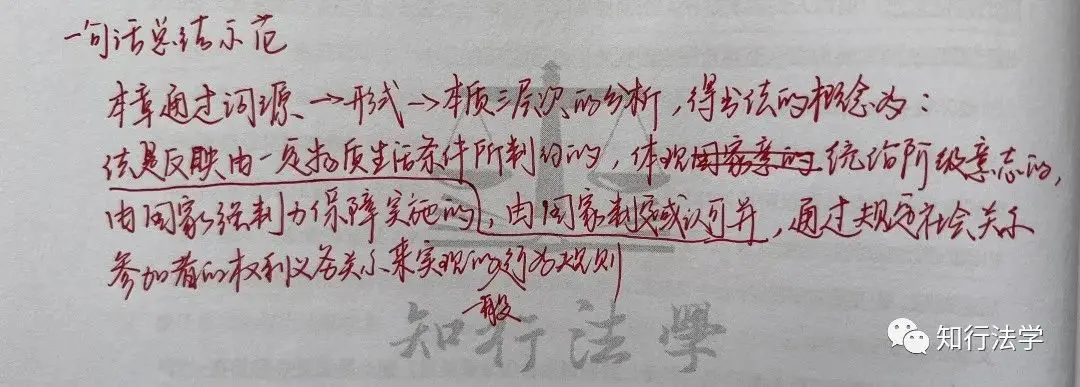 一句话总结示范
本章通过词源→形式→本质三层次的分析，得出法的概念为：
法是反映由一定物质生活条件所制约的，体现国家意的统治阶级意志的，
由国家强制力保障实施的，由国家制定或认可并，通过规定社会关系
参加者的权利义务关系来实现的行为规则
一般
知行法學
知行法学